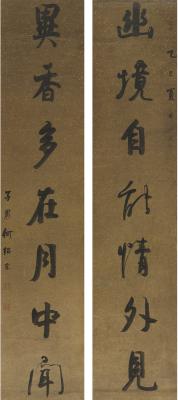 幽境自能情外見
異香多在月中聞
子貞何紹基